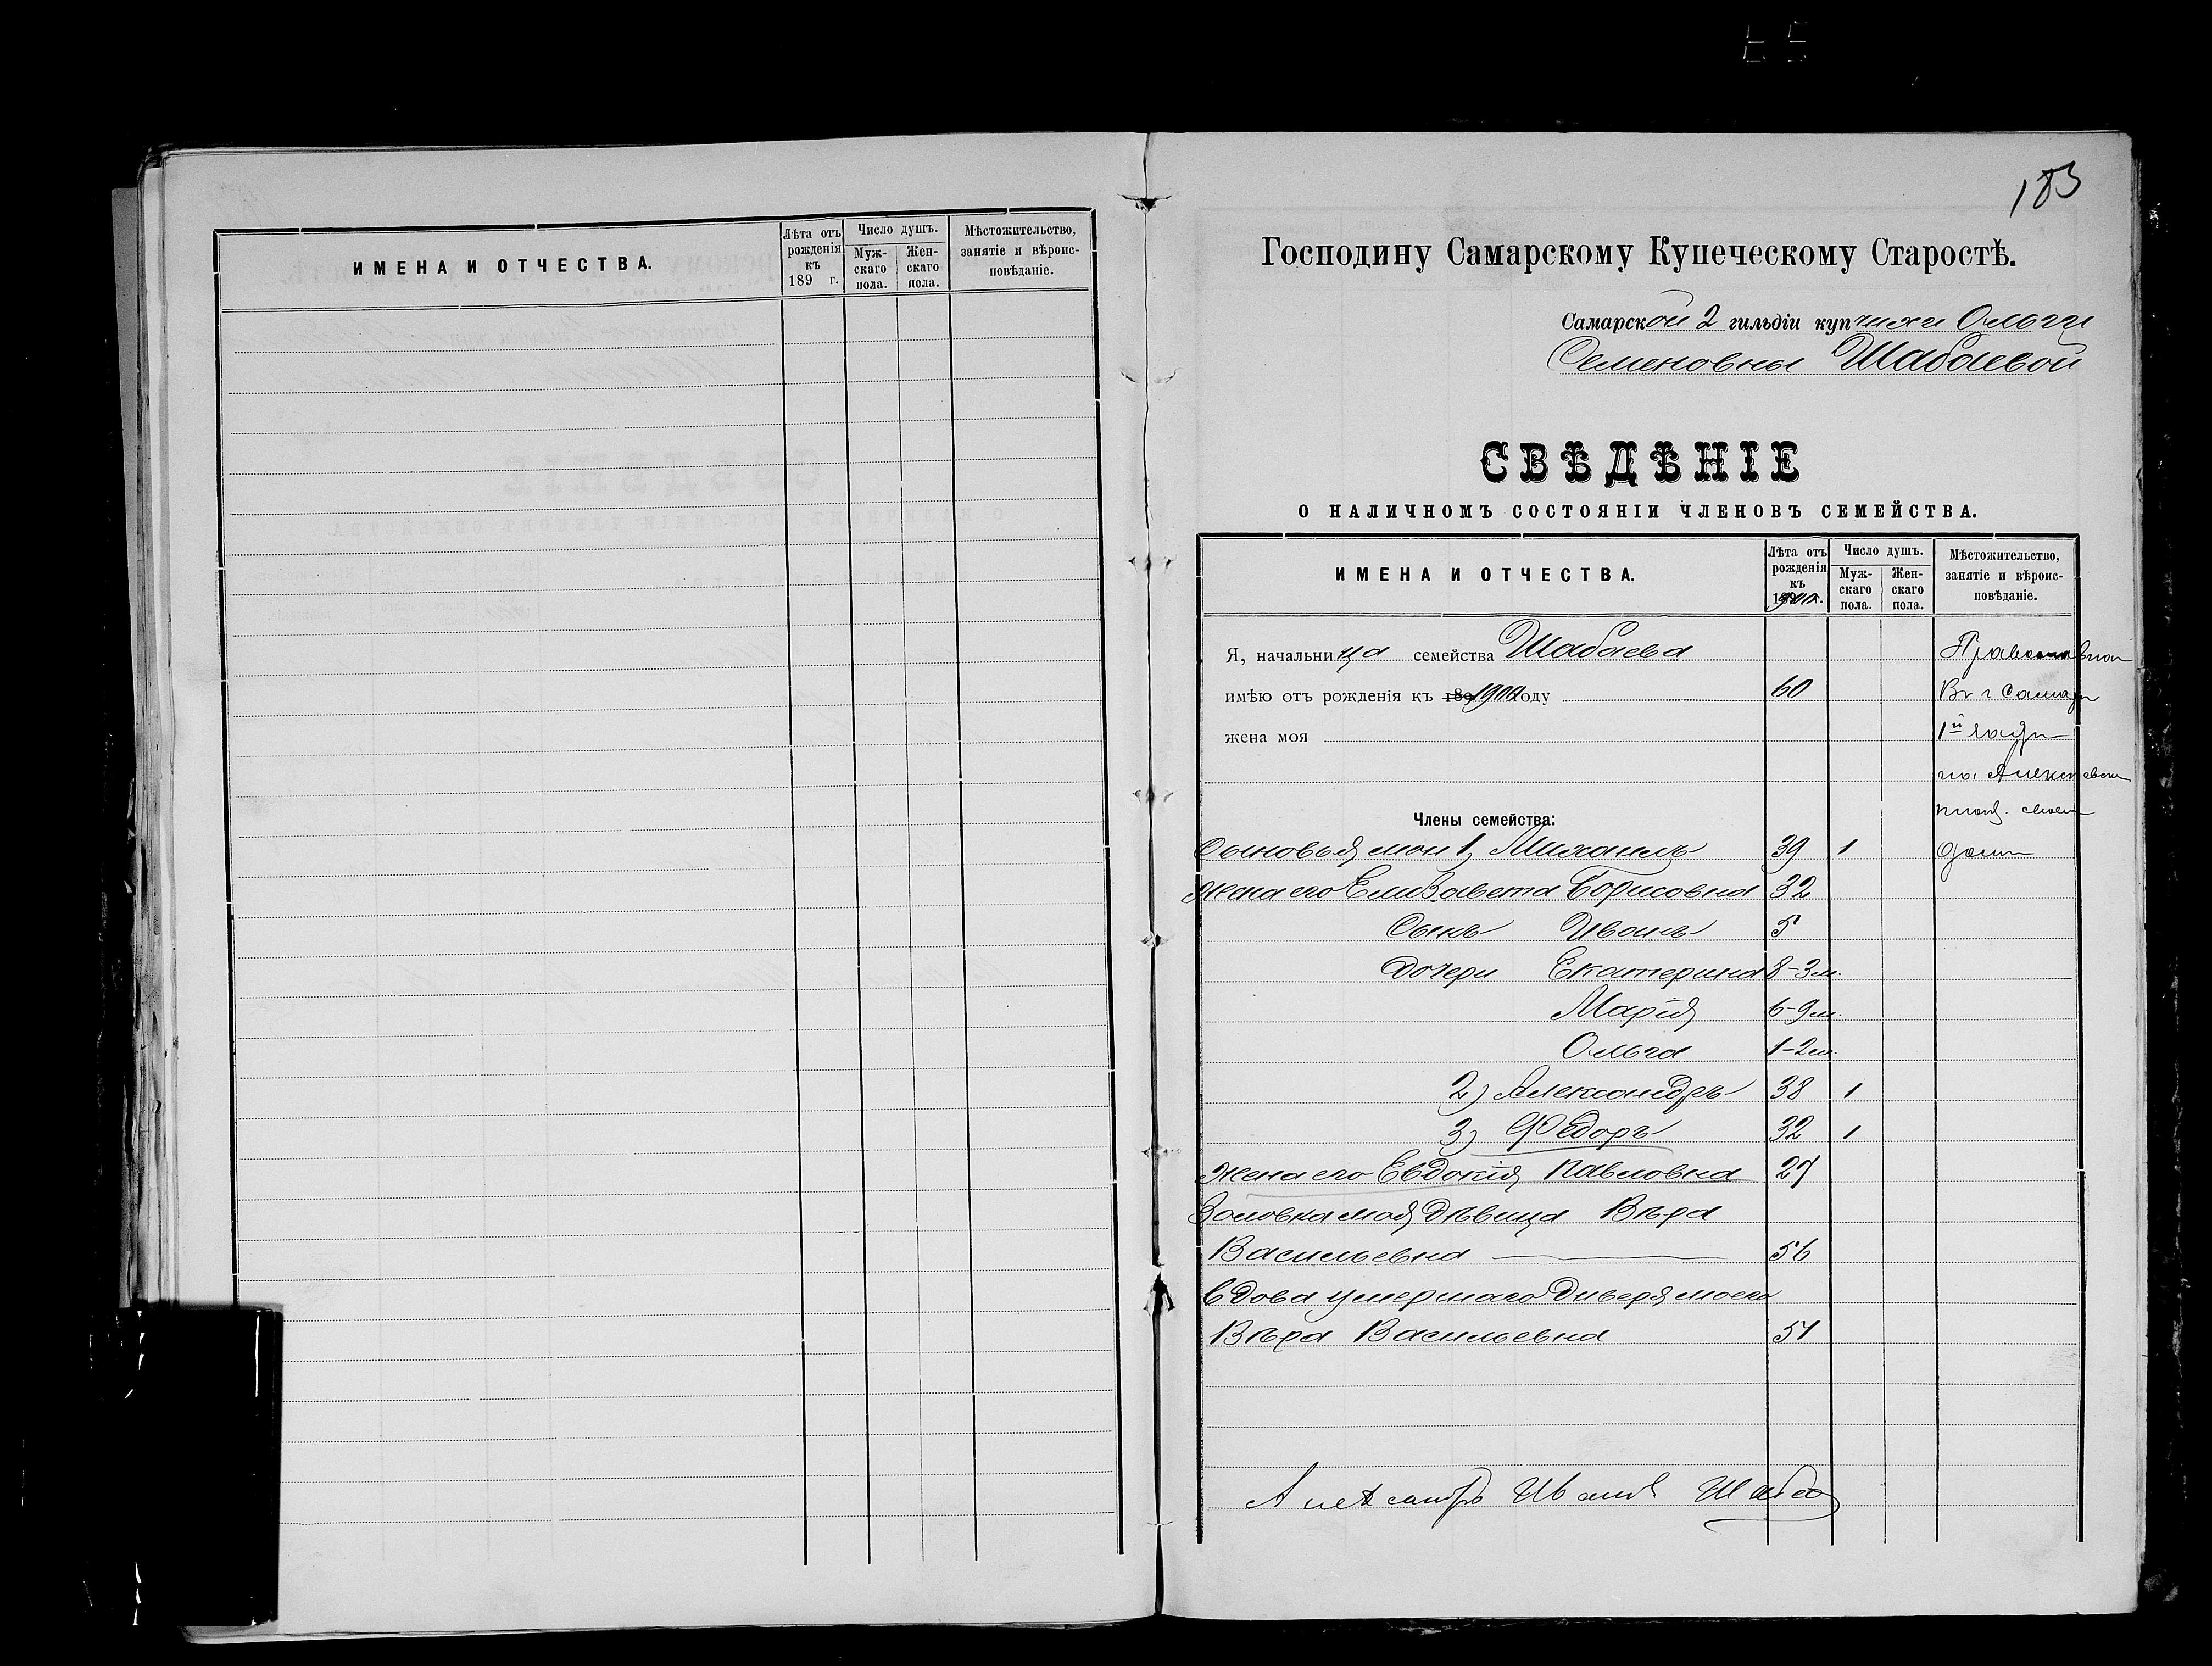 ИМЕНА И ОТЧЕСТВА.
Лѣта отъ рожденія къ 189 г.
Число душъ.
Муж-скаго пола.
Жен-скаго пола.
Мѣстожительство, занятіе и вѣроис-повѣданіе.
183
Господину Самарскому Купеческому Старостѣ.
Самарской 2 гильдіи купчихи Ольги
Семеновны Шабаевой
СВѢДѢНІЕ
О НАЛИЧНОМЪ СОСТОЯНІИ ЧЛЕНОВЪ СЕМЕЙСТВА.
ИМЕНА И ОТЧЕСТВА.
Лѣта отъ рожденія къ г.
Число душъ.
Муж-скаго пола.
Жен-скаго пола.
Мѣстожительство, занятіе и вѣроис-повѣданіе.
Я, начальница семейства Шабаева
имѣю отъ рожденія къ году 60 Въ г Самарѣ
жена моя 1й
Члены семейства:
Сыновья мои 1, Михаилъ 39 1 домъ
Жена его Елизавета Борисовна 32
Сынъ Иванъ 5
Дочери Екатерина 8-3 м.
Марія 6-9 м.
Ольга 1-2 м.
2) Александръ 38 1
3) Федоръ 32 1
Жена его Евдокія Павловна 27
Золовка моя Дѣвица Вѣра
Васильевна 56
Вдова умершаго Диверя моего
Вѣра Васильевна 51
Александръ Иванов Шаба